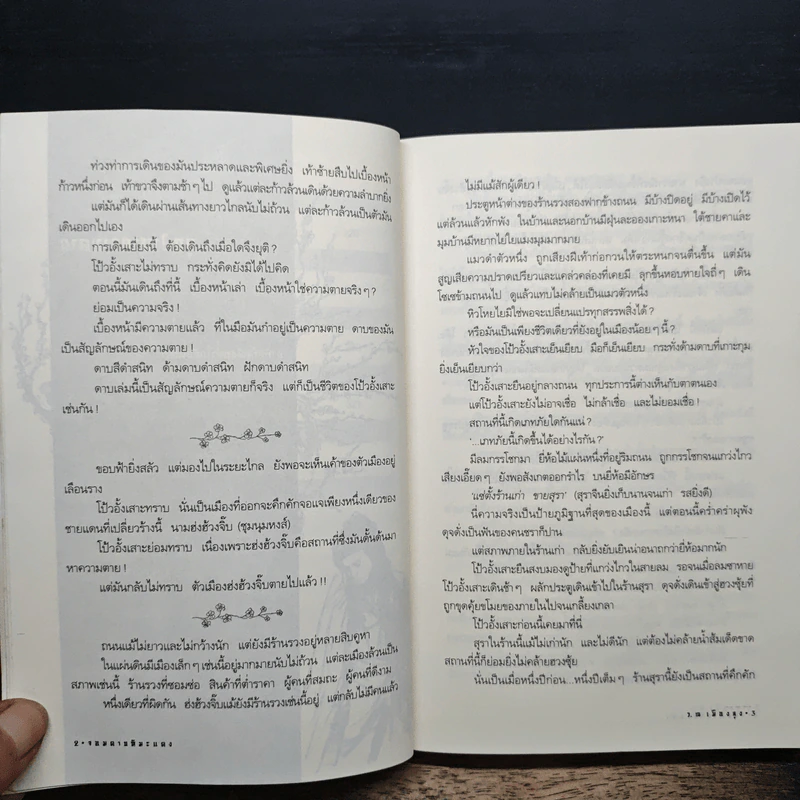 ท่วงท่าการเดินของมันประหลาดและพิเศษยิ่ง เท้าซ้ายสืบไปเบื้องหน้า
ก้าวหนึ่งก่อน เท้าขวาจึงตามช้าๆ ไป ดูแล้วแต่ละก้าวล้วนเดินด้วยความลำบากยิ่ง
แต่มันก็ได้เดินผ่านเส้นทางยาวไกลนับไม่ถ้วน แต่ละก้าวล้วนเป็นตัวมัน
เดินออกไปเอง
การเดินเยี่ยงนี้ ต้องเดินถึงเมื่อใดจึงยุติ?
โป้วอั้งเสาะไม่ทราบ กระทั่งคิดยังมิได้ไปคิด
ตอนนี้มันเดินถึงที่นี้ เบื้องหน้าเล่า เบื้องหน้าใช่ความตายจริงๆ?
ย่อมเป็นความจริง!
เบื้องหน้ามีความตายแล้ว ที่ในมือมันกำอยู่เป็นความตาย ดาบของมัน
เป็นสัญลักษณ์ของความตาย!
ดาบสีดำสนิท ด้ามดาบดำสนิท ฝักดาบดำสนิท
ดาบเล่มนี้เป็นสัญลักษณ์ความตายก็จริง แต่ก็เป็นชีวิตของโป้วอั้งเสาะ
เช่นกัน!
ขอบฟ้ายิ่งสลัว แต่มองไปในระยะไกล ยังพอจะเห็นเค้าของตัวเมืองอยู่
เลือนราง
โป้วอั้งเสาะทราบ นั่นเป็นเมืองที่ออกจะคึกคักจอแจเพียงหนึ่งเดียวของ
ชายแดนที่เปลี่ยวร้างนี้ นามฮ่งฮ้วงจิ๊บ (ชุมนุมหงส์)
โป้วอั้งเสาะย่อมทราบ เนื่องเพราะฮ่งฮ้วงจิ๊บคือสถานที่ซึ่งมันดั้นด้นมา
หาความตาย!
แต่มันกลับไม่ทราบ ตัวเมืองฮ่งฮ้วงจิ๊บตายไปแล้ว!!
ถนนแม้ไม่ยาวและไม่กว้างนัก แต่ยังมีร้านรวงอยู่หลายสิบคูหา
ในแผ่นดินมีเมืองเล็กๆ เช่นนี้อยู่มากมายนับไม่ถ้วน แต่ละเมืองล้วนเป็น
สภาพเช่นนี้ ร้านรวงที่ซอมซ่อ สินค้าที่ต่ำราคา ผู้คนที่สมถะ ผู้คนที่ดีงาม
หนึ่งเดียวที่ผิดกัน ฮ่งฮ้วงจิ๊บแม้ยังมีร้านรวงเช่นนี้อยู่ แต่กลับไม่มีคนแล้ว
2 • จอมดาบหิมะแดง
ไม่มีแม้สักผู้เดียว!
ประตูหน้าต่างของร้านรวงสองฟากข้างถนน มีบ้างปิดอยู่ มีบ้างเปิดไว้
แต่ล้วนแล้วหักพัง ในบ้านและนอกบ้านมีฝุ่นละอองเกาะหนา ใต้ชายคาและ
มุมบ้านมีหยากไย่ใยแมงมุมมากมาย
แมวดำตัวหนึ่ง ถูกเสียงฝีเท้าก่อกวนให้ตระหนกจนตื่นขึ้น แต่มัน
สูญเสียความปราดเปรียวและแคล่วคล่องที่เคยมี ลุกขึ้นหอบหายใจถี่ๆ เดิน
โซเซข้ามถนนไป ดูแล้วแทบไม่คล้ายเป็นแมวตัวหนึ่ง
หิวโหยไยมิใช่พอจะเปลี่ยนแปรทุกสรรพสิ่งได้?
หรือมันเป็นเพียงชีวิตเดียวที่ยังอยู่ในเมืองน้อยๆ นี้?
หัวใจของโป้วอั้งเสาะเย็นเยียบ มือก็เย็นเยียบ กระทั่งด้ามดาบที่เกาะกุม
ยิ่งเย็นเยียบกว่า
โป้วอั้งเสาะยืนอยู่กลางถนน ทุกประการนี้ต่างเห็นกับตาตนเอง
แต่โป้วอั้งเสาะยังไม่อาจเชื่อ ไม่กล้าเชื่อ และไม่ยอมเชื่อ!
สถานที่นี้เกิดเภทภัยใดกันแน่?
'...เภทภัยนี้เกิดขึ้นได้อย่างไรกัน?'
มีลมกรรโชกมา ยี่ห้อไม้แผ่นหนึ่งที่อยู่ริมถนน ถูกกรรโชกจนแกว่งไกว
เสียงเอี๊ยดๆ ยังพอสังเกตออกรำไร บนยี่ห้อมีอักษร
'แซ่ตั้งร้านเก่า ขายสุรา' (สุราจีนยิ่งเก็บนานจนเก่า รสยิ่งดี)
นี่ความจริงเป็นป้ายภูมิฐานที่สุดของเมืองนี้ แต่ตอนนี้คร่ำคร่าผุพัง
ดุจดั่งเป็นฟันของคนชราก็ปาน
แต่สภาพภายในร้านเก่า กลับยิ่งยับเยินน่าอนาถกว่ายี่ห้อมากนัก
โป้วอั้งเสาะยืนสงบมองดูป้ายที่แกว่งไกวในสายลม รอจนเมื่อลมซาหาย
โป้วอั้งเสาะเดินช้าๆ ผลักประตูเดินเข้าไปในร้านสุรา ดุจดั่งเดินเข้าสู่ฮวงซุ้ยที่
ถูกขุดคุ้ยขโมยของภายในไปจนเกลี้ยงเกลา
โป้วอั้งเสาะก่อนนี้เคยมาที่นี่
สุราในร้านนี้แม้ไม่เก่านัก และไม่ดีนัก แต่ต้องไม่คล้ายน้ำส้มเด็ดขาด
สถานที่นี้ก็ย่อมยิ่งไม่คล้ายฮวงซุ้ย
นั่นเป็นเมื่อหนึ่งปีก่อน...หนึ่งปีเต็มๆ ร้านสุรานี้ยังเป็นสถานที่คึกคัก
ว. ณ เมืองลุง • 3